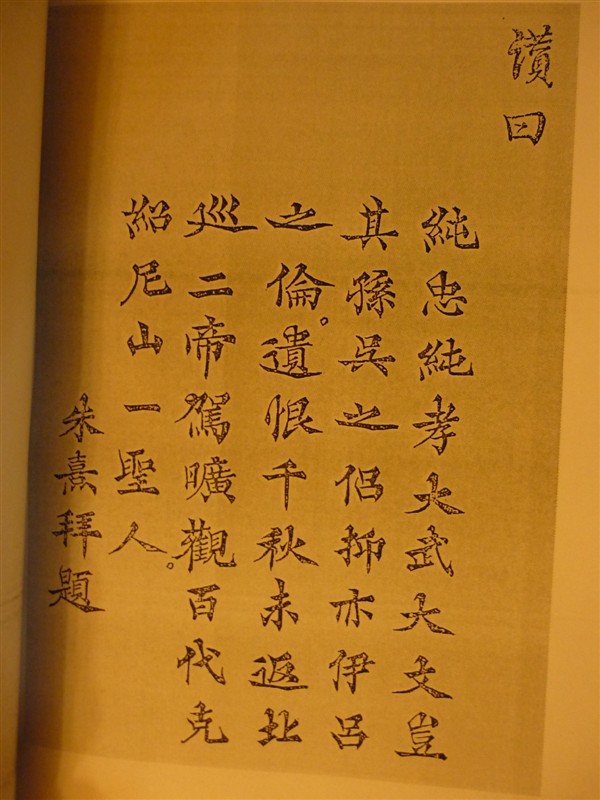 讚曰
純忠純孝大武大文豈
其孫吳之侶抑亦伊呂
之倫。遺恨千秋未返北
巡二帝駕曠觀百代克
紹尼山一聖人。
朱熹拜題